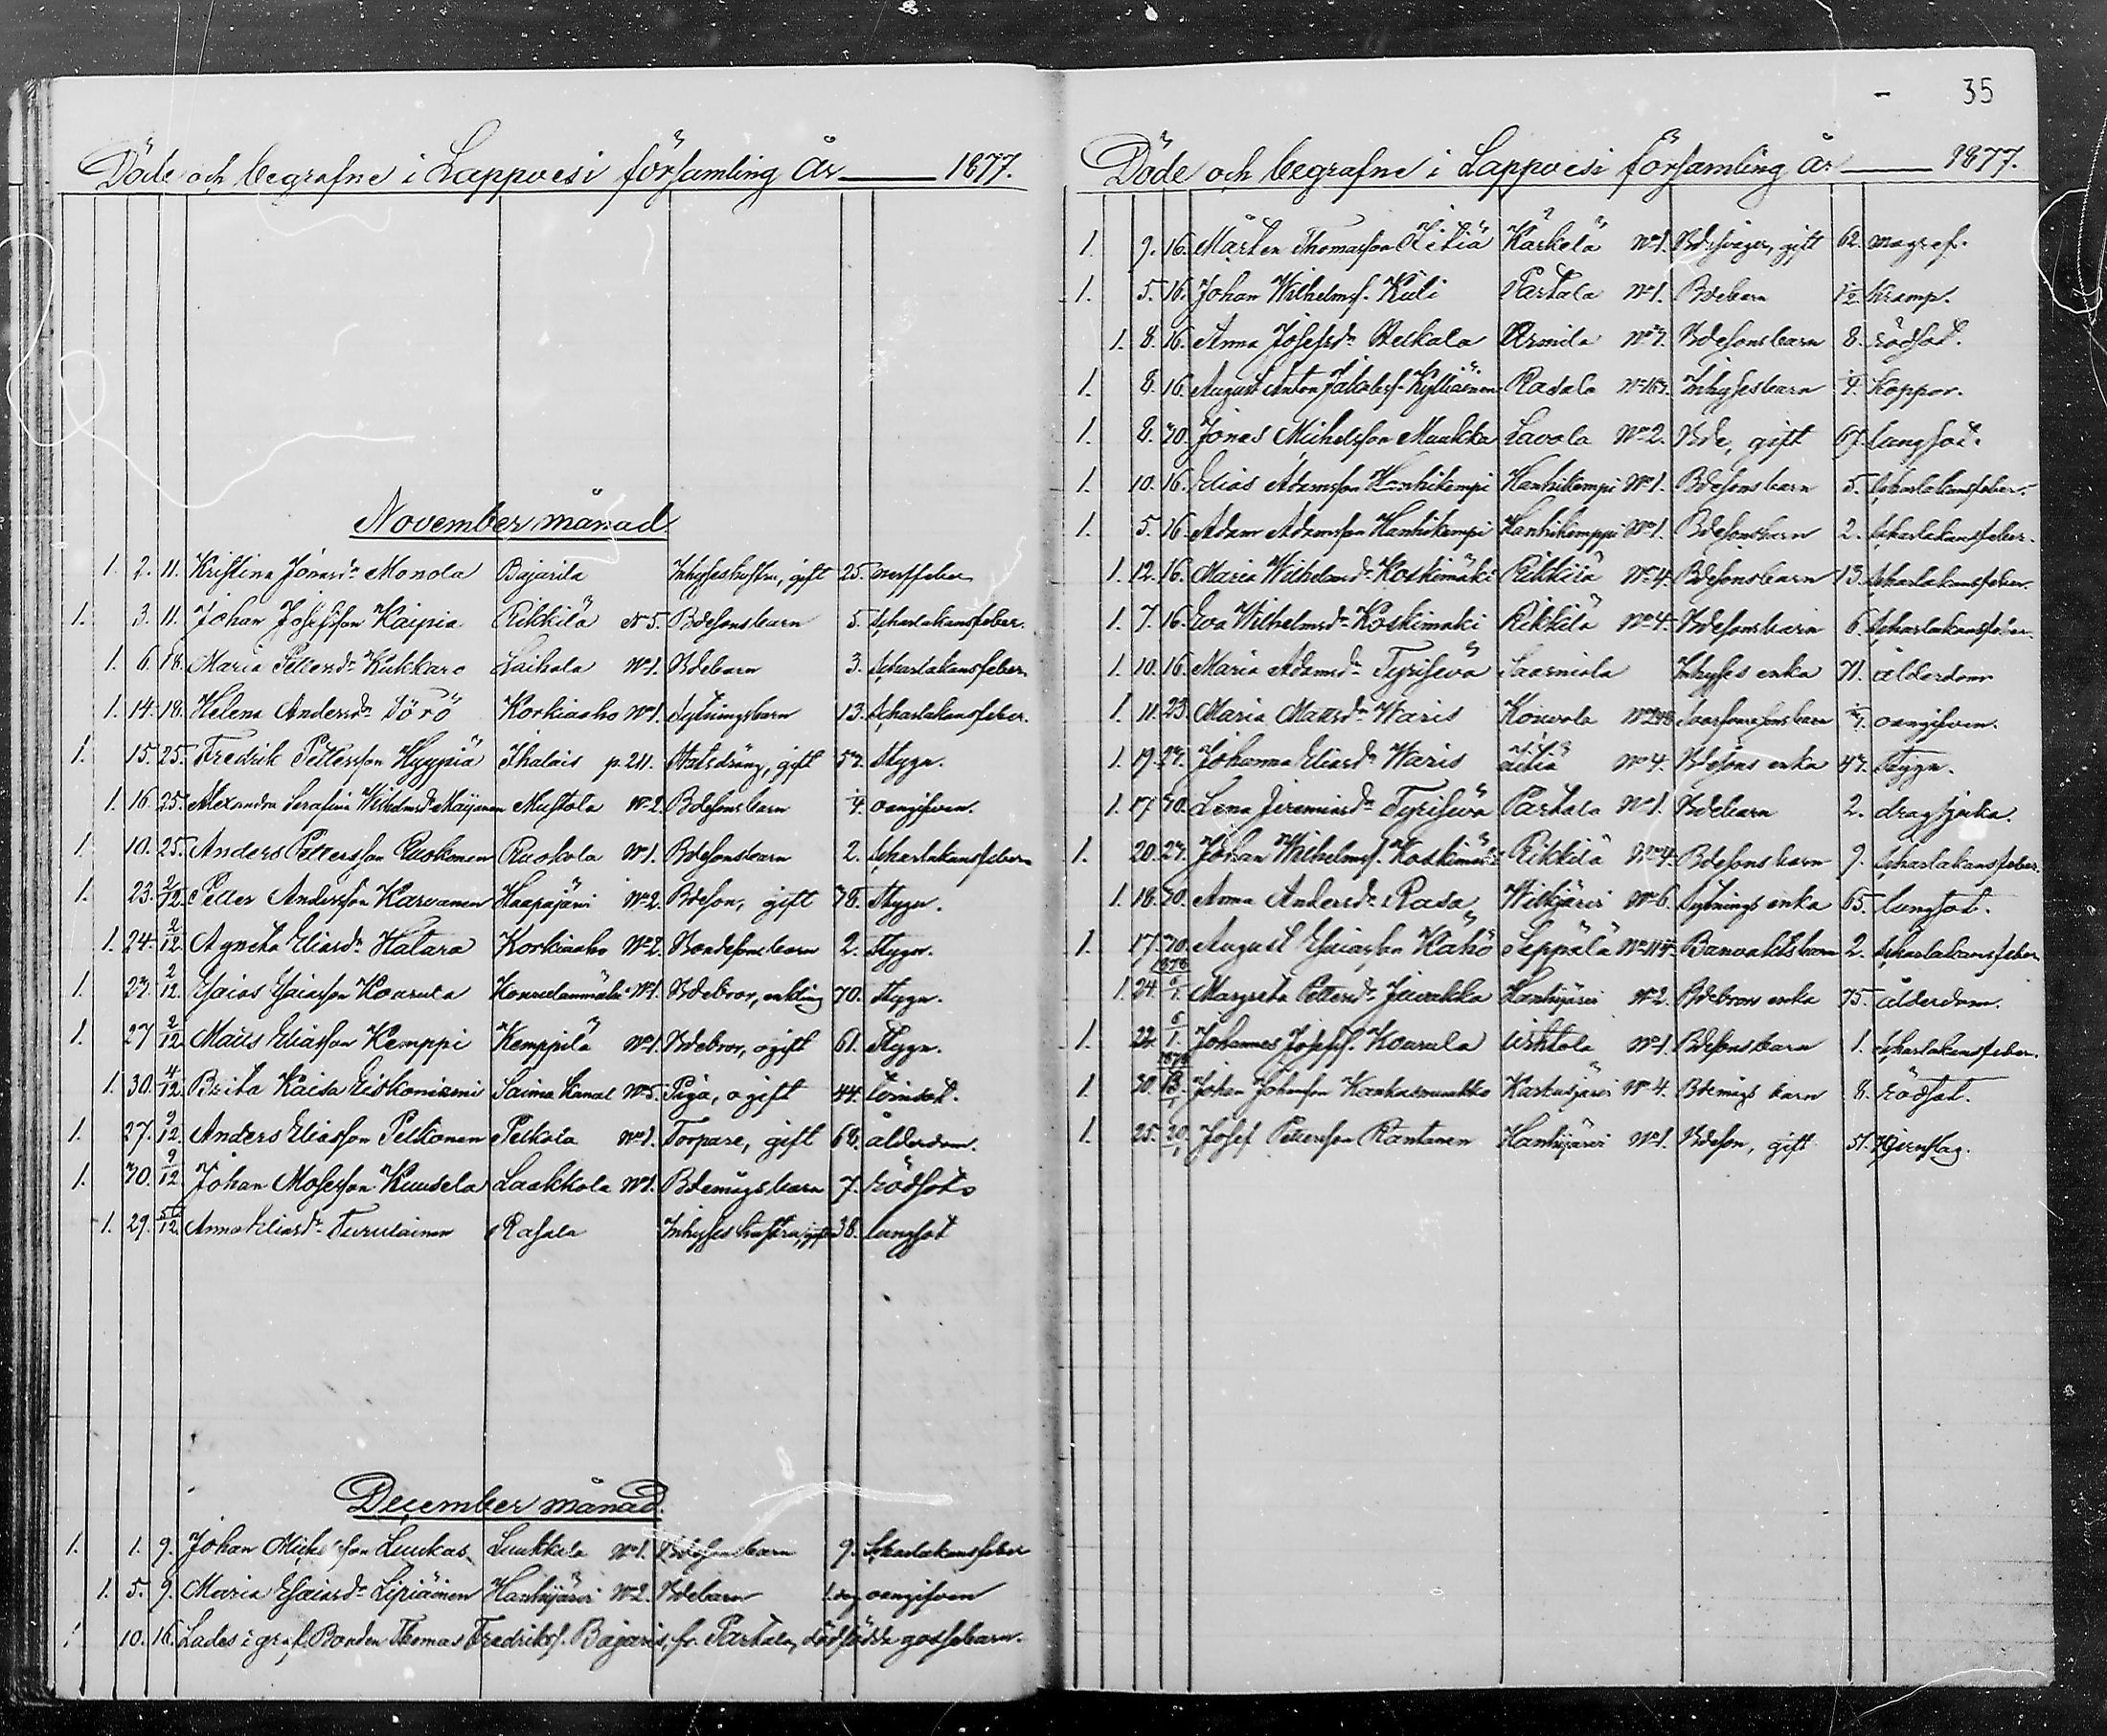 Döde och begrafne i Lappvesi församling År 1877.
November månad.
1. 2. 11. Kristina Jonasdr Monola Bajarila Inhyseshustru, gift 25.
1. 3. 11. Johan Josefsson Kaipia Rikkilä No 5. Bdesonsbarn 5. Scharlakansfeber.
1. 6. 18. Maria Pettersdr Kukkaro Laihala No 1. Bdebarn 3. Scharlakansfeber.
1. 14. 18. Helena Andersdr Sörö Korkiaaho No 1. Sytningsbarn 13. Scharlakansfeber.
1. 15. 25. Fredrik Pettersson Hyypiä Ihalais p. 211. Statsdräng, gift 57. Stygn.
1. 16. 25. Alexandra Serafina Wilhelmsdr Maijanen Mustola No 2. Bdesonsbarn 1/4. oangifven.
1. 10. 25. Anders Pettersson Ruokonen Ruokola No 1. Bdesonsbarn 2. Scharlakansfeber
1. 23. 2/12. Petter Andersson Karvanen Haapajärvi No 2. Bdeson, gift 78. Stygn.
1. 24. 2/12. Agneta Eliasdr Hatara Korkiaaho No 2. Bondesonsbarn 2. Stygn.
1. 27. 2/12. Esaias Esaiasson Kourula Kourulanmäki No 1. Bdebror, enkling 70. Stygn.
1. 27 2/12. Matts Eliasson Kemppi Kemppilä No 1. Bdebror, ogift 61. Stygn.
1. 30. 4/12. Brita Kaisa Saima Kanal No 5. Piga, ogift 44.
1. 27. 9/12. Anders Eliasson Peltonen Pelkola No 1. Torpare, gift 68. ålderdom.
1. 30. 9/12. Johan Mosesson Kuusela Laakkola No 1. Bdemågsbarn 7. rödsot.
1. 29. /12. Anna Eliasdr Turulainen Rasala Inhyses hustru, gift 38. lungsot
December månad.
1. 1. 9. Johan Michelsson Luukas Luukkala No 1. Bdesonsbarn 9. Scharlakansfeber
1. 5. 9. Maria Esaiasdr Lipiäinen Hanhijärvi No 2. Bdebarn 1. dag oangifven
1. 10. 16. Lades i graf, Bonden Thomas Fredrikss. Bajaris, fr. Partala, dödfödda gossebarn.
35
Döde och begrafne i Lappvesi församling år 1877.
1. 9. 16. Mårten Thomasson Äitiä Kärkelä No 1. Bdesvåger, gift 62. magref.
1. 5. 16. Johan Wilhelmss. Kuli Partala No 1. Bdebarn 1/2. Kramp.
1. 8. 16. Anna Josefsdr Armila No 7. Bdesonsbarn 8. rödsot.
1. 8. 16. August Anton Jakobss. Kylliäinen Rasala Inhysesbarn 1/4. Koppor.
1. 8. 30. Jonas Michelsson Muukka Lavola No 2. Bde, gift 67. lungsot.
1. 10. 16. Elias Adamsson Hanhikempi Hanhikempi No 1. Bdesonsbarn 5. Scharlakansfeber.
1. 5. 16. Adam Adamsson Hanhikempi Hanhikemppi No 1. Bdesonsbarn 2. Scharlakansfeber.
1. 12. 16. Maria Wilhelmsdr Koskimäki Rikkilä No 4. Bdesonsbarn 13. Scharlakansfeber.
1. 7. 16. Eva Wilhelmsdr Koskimäki Rikkilä No 4. Bdesonsbarn 6. Scharlakansfeber.
1. 10. 16. Maria Adamsdr Tyrisevä Saarniala Inhyses enka 71. ålderdom
1. 11. 23. Maria Mattsdr Waris Kourola oangifven.
1. 19. 27. Johanna Eliasdr Waris Äitiä No 4. Bdesons enka 47. Stygn.
1. 17 30. Lena Jeremiasdr Tyrisevä Partala No 1. Bdebarn 2. dragsjuka.
1. 20. 27. Johan Wilhelmss. Koskimäki Rikkilä No 4. Bdesonsbarn 9. Scharlakansfeber.
1. 18. 30. Anna Andersdr Rasa Wilkjärvi No 6. Sytnings enka 65. lungsot.
1. 17. 30. August Esaiasson Kähö Seppälä No 114. Banvaktsbarn 2. Scharlakansfeber
1878
1. 24. 6/1. Margreta Pettersdr Juvakka Hanhijärvi No 2. Bdebrors enka 75. ålderdom.
1. 22. 6/1. Johannes Josefss. Kourula Wihtola No 1. Bdesonsbarn 1. Scharlakansfeber.
1878
1. 30. 13/1 Johan Johansson Kankasmuukko Karhusjärvi No 4. Bdemågs barn 8. rödsot.
1. 25. 20/1 Josef Pettersson Rantanen Hanhijärvi No 1. Bdeson, gift 51. Hjernslag.